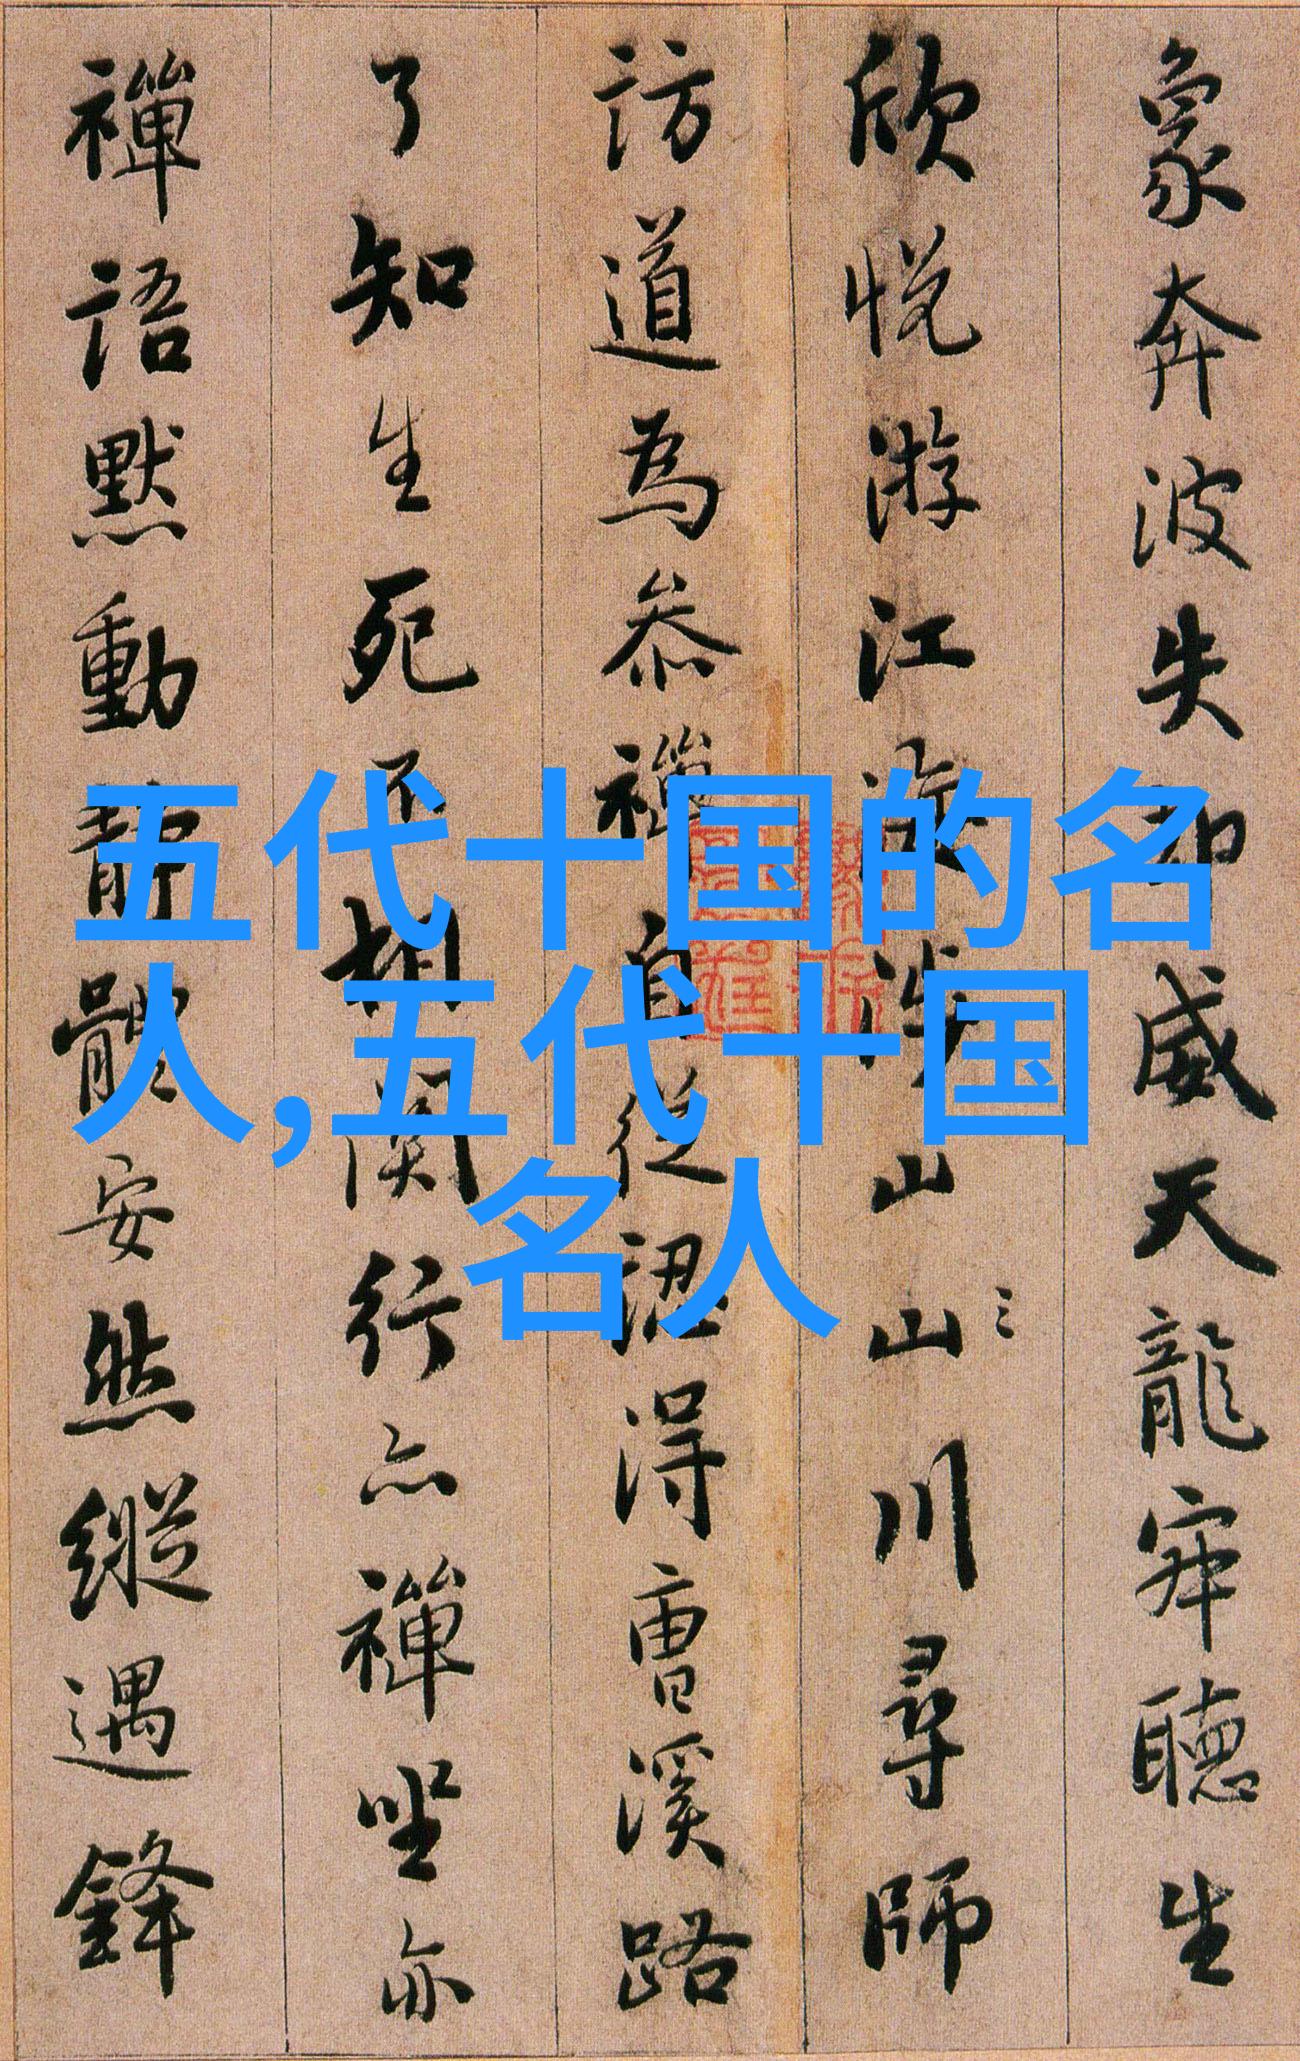 象奔波失却威天龍寂聽生
欣悦游江海涉山山川尋師
訪道為叅禪自從認得曹溪路
了知生死不相関行亦禪坐亦
禪語默動静體安然縱遇鋒
五代十国的名
人,五代十国
名人